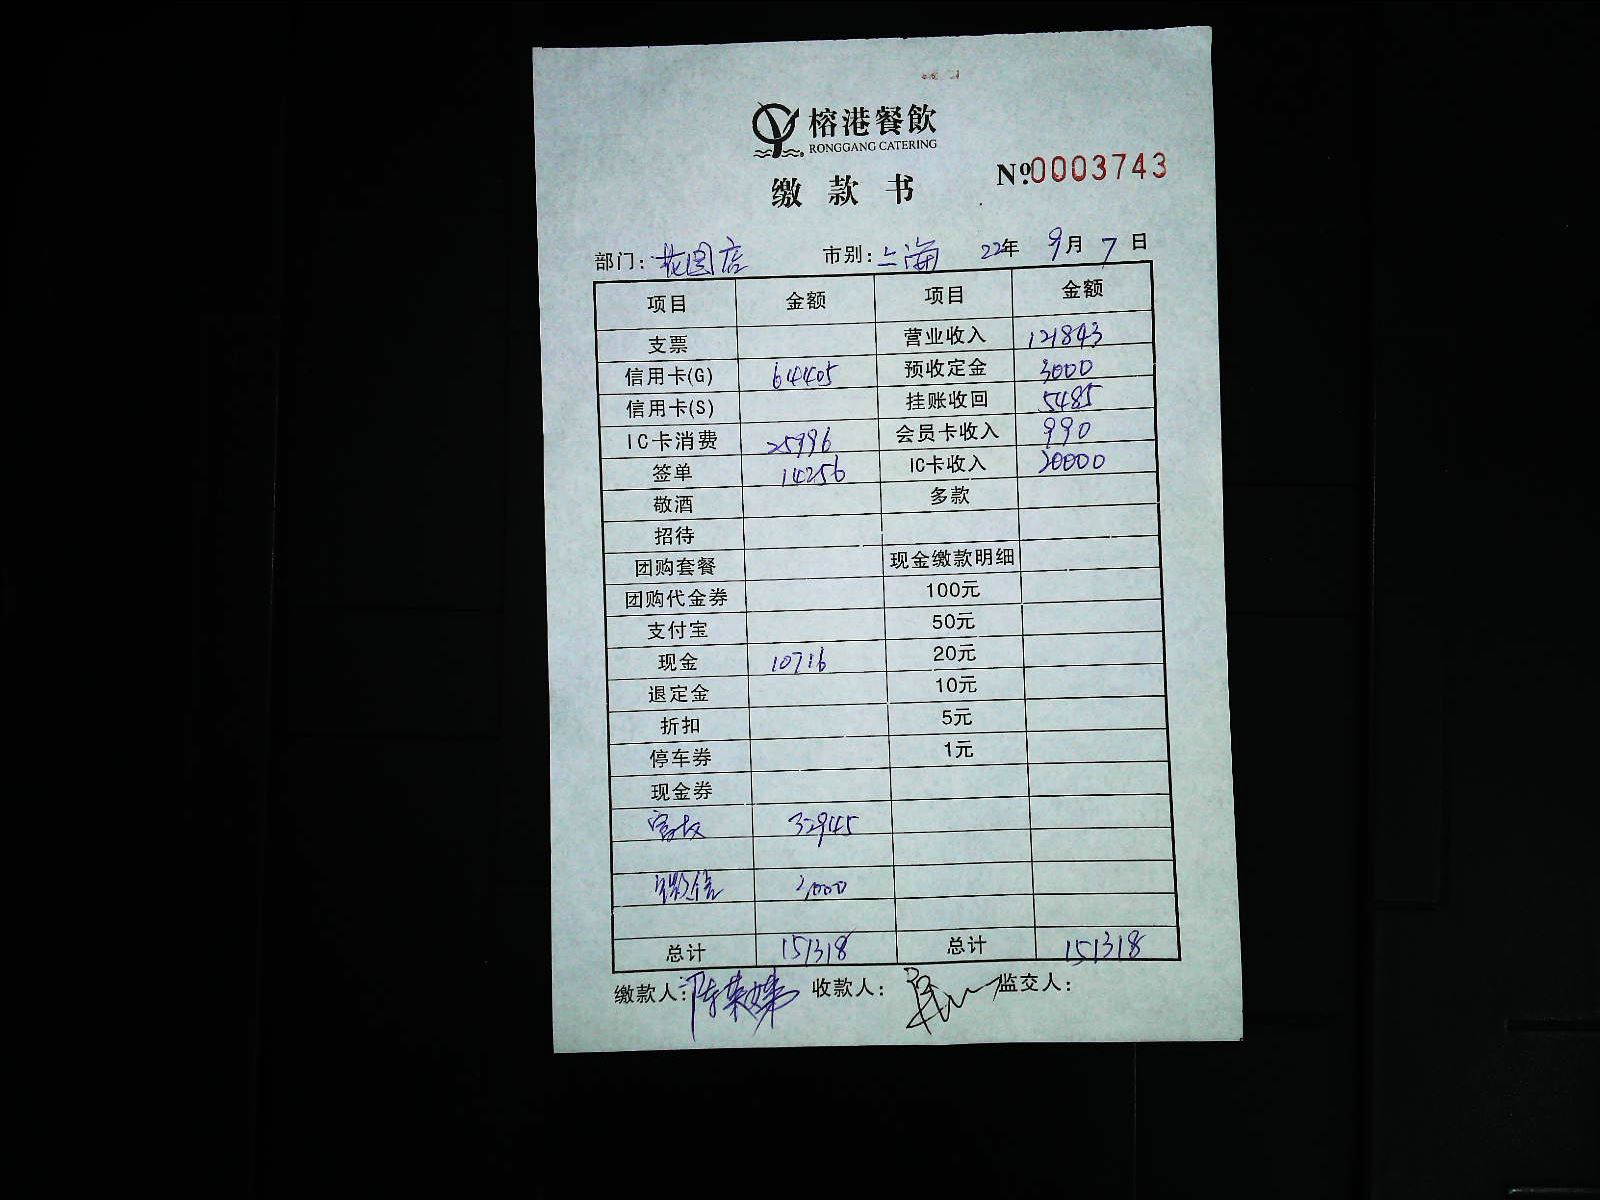 榕港餐飲
RONGGANG CATERING
缴款书
№0003743
部门：花园店 市别：上海 22年 9月 7日
项目 金额 项目 金额
支票 营业收入 121843
信用卡(G) 64405 预收定金 3000
信用卡(S) 挂账收回 5485
IC卡消费 25996 会员卡收入 990
签单 14256 IC卡收入 20000
敬酒 多款
招待
团购套餐 现金缴款明细
团购代金券 100元
支付宝 50元
现金 10716 20元
退定金 10元
折扣 5元
停车券 1元
现金券
32945
微信 3000
总计 151318 总计 151318
缴款人： 收款人： 监交人：